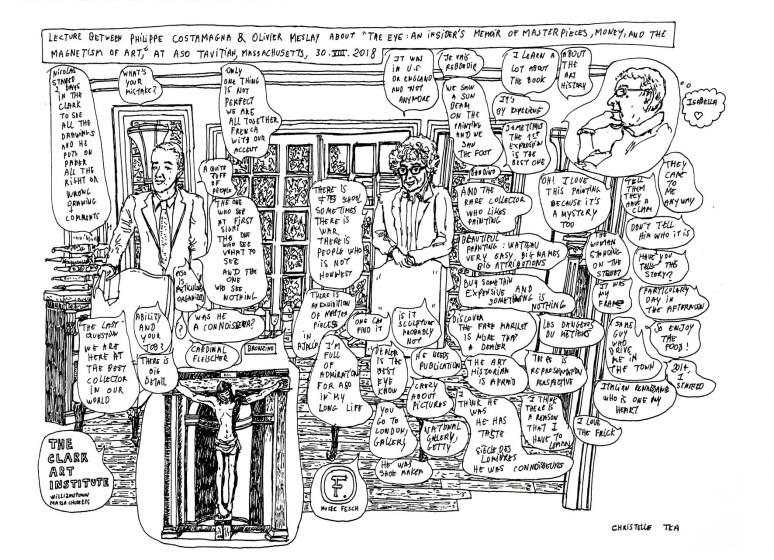 LECTURE BETWEEN PHILIPPE COSTAMAGNA & OLIVIER MESLAY ABOUT "THE EYE: AN INSIDER'S MEMOIR OF MASTERPIECES, MONEY, AND THE
MAGNETISM OF ART," AT ASO TAVITIAN, MASSACHUSETTS, 30.VIII.2018
NICOLAS
STAYED
3 DAYS
IN THE
CLARK
TO SEE
ALL THE
DRAWINGS
AND HE
PUTS ON
PAPER
ALL THE
RIGHT OR
WRONG
DRAWING
COMMENTS
WHAT'S
YOUR
MISTAKE?
ONLY
ONE THING
IS NOT
PERFECT
WE ARE
ALL TOGETHER
FRENCH
WITH OUR
ACCENT
IT WAS
IN U.S
OR ENGLAND
AND NOT
ANYMORE
WE SAW
A SUN
BEAM
ON THE
PAINTING
AND WE
SAW
THE FOOT
I LEARN A
LOT ABOUT
THE BOOK
ABOUT
THE
ART
HISTORY
IT'S
SOMETIMES
THE 1ST
EXPRESSION
IS THE
BEST ONE
ISABELLA
A QUITE
TUFF
OF
PEOPLE
THE ONE
WHO SEE
AT FIRST
SIGHT
THE ONE
WHO SEE
WHAT TO
SEE
AND THE
ONE
WHO SEE
NOTHING
THERE IS
SHOW
SOMETIMES
THERE IS
WAR
THERE IS
PEOPLE WHO
IS NOT
HONNEST
AND THE
RARE COLLECTOR
WHO LIKES
PAINTING
OH! I LOVE
THIS PAINTING
BECAUSE IT'S
A MYSTERY
TOO
TELL
THEM
THEY
HAVE
A CLAIM
THEY
CAME
TO
ME
ANYWAY
DON'T TELL
HIM WHO IT IS
BEAUTIFUL
PAINTING: WATTEAU
VERY EASY BIG NAMES
BIG ATTRIBUTIONS
THE
WOMAN
STANDING
ON THE
STREET
HAVE YOU
TELL THIS
STORY?
BUT SOMETHIN
EXPENSIVE AND
SOMETHING IS
NOTHING
IT WAS
MY
PARTICULARY
DAY IN
THE AFTERNOON
ASO
IS
PARTICULARLY
ORGANIZED
WAS HE
A CONNOISSEUR?
?
THE LAST
QUESTION
WE ARE
HERE AT
THE BEST
COLLECTOR
IN OUR
WORLD
ABILITY
AND
YOUR
JOB?
THERE IS
BIG
DETAIL
CARDINAL
FLEISCHER
BRONZINO
THERE IS
AN EXHIBITION
OF MASTER
PIECES
IN
I'M
FULL
OF
ADMIRATION
FOR ASO
IN MY
LONG LIFE
ONE CAN
FIND IT
IS IT
SCULPTURE
PROBABLY
NOT
DISCOVER
THE FAKE MARKET
IS MORE THAN
A DEALER
LES DANGERS
DU METIERS
SOME
GUY
WHO
DRIVE
ME IN
THE TOWN
SO ENJOY
THE
FOOD!
DEALER
IS THE
BEST
EYE
KNOW
HE NEEDS
PUBLICATION
THE ART
HISTORIAN
IS AFRAID
REPRESENTATION
PERSPECTIVE
ITALIAN RENAISSANCE
WHO IS ONE MY
HEART
2014
I
STARTED
CRAZY
ABOUT
PICTURES
YOU
GO TO
LONDON,
GALLERY
NATIONAL
GALLERY,
GETTY
I THINK HE
WAS
HE HAS
TASTE
SIÈCLE DES
LUMIERES
HE WAS CONNOISSEURS
I THINK
THERE IS
A REASON
THAT I
HAVE TO
I LOVE
THE FRICK
HE WAS
SHOE MAKER
THE
CLARK
ART
INSTITUTE
WILLIAMSTOWN
MASSACHUSETTS
F.
MUSÉE FESCH
CHRISTELLE TEA